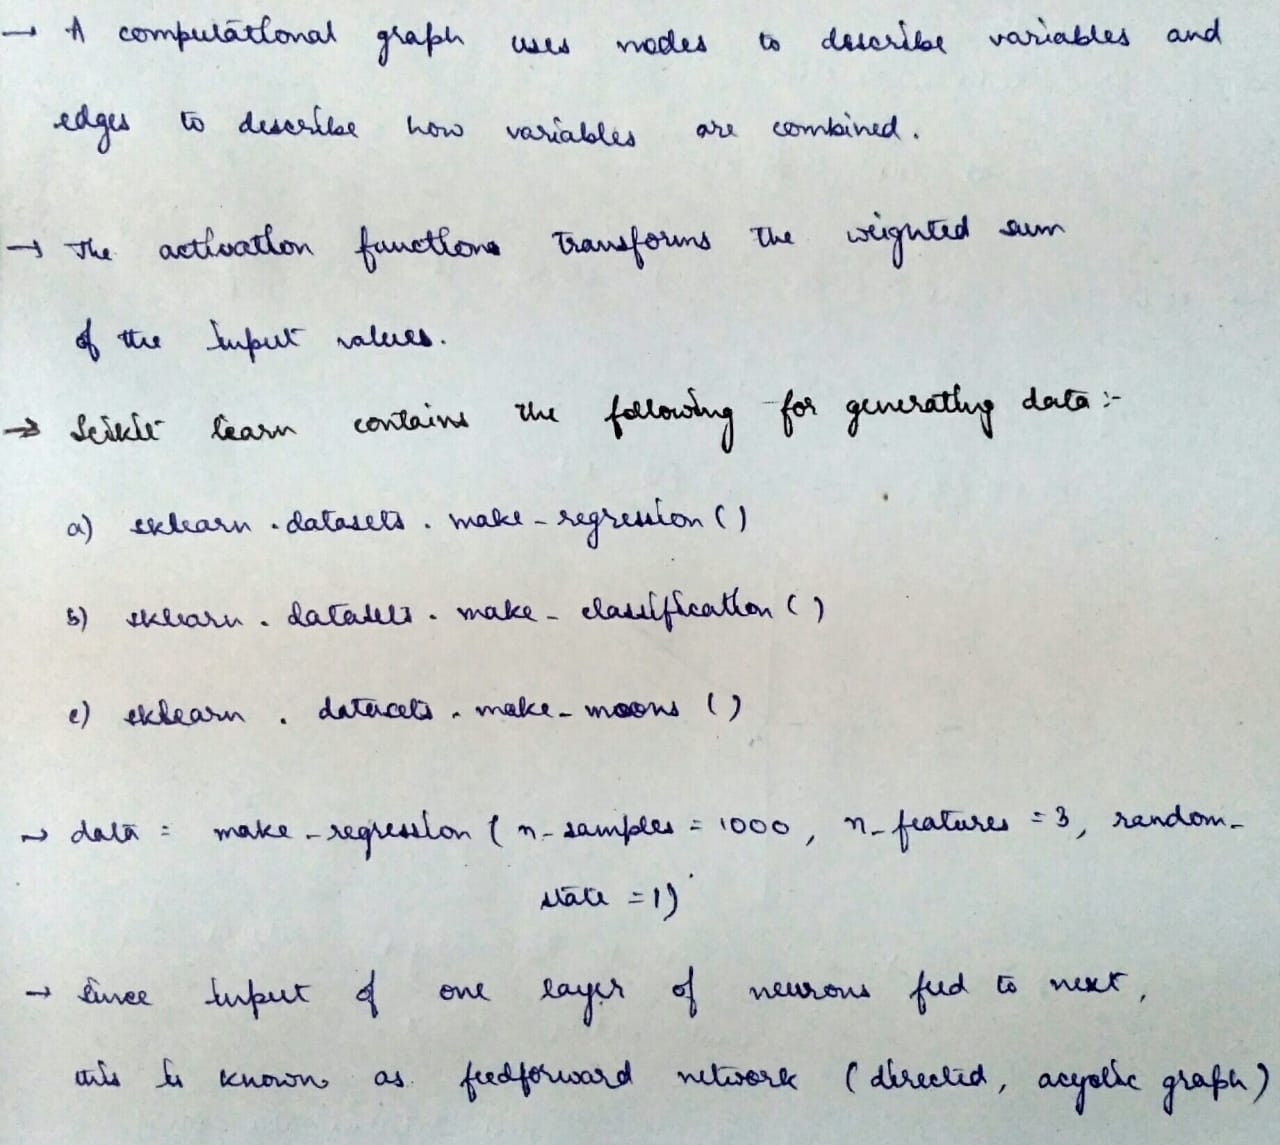 → A computational graph uses nodes to describe variables and
edges to describe how variables are combined.
→ The activation functions transforms the weighted sum
of the input values.
→ Scikit learn contains the following for generating data :-
a) sklearn . datasets . make_regression ( )
b) sklearn . datasets . make_classification ( )
c) sklearn . datasets . make_moons ( )
→ data = make_regression ( n_samples = 1000 , n_features = 3, random_
state = 1)
→ Since input of one layer of neurons fed to next ,
this is known as feedforward network ( directed, acyclic graph )